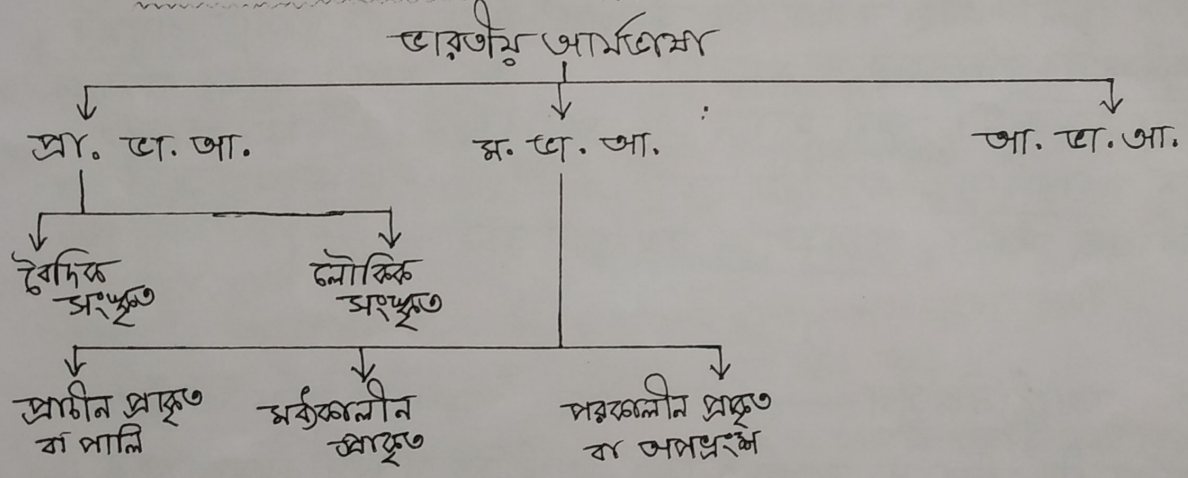 ভারতীয় আর্যভাষা
প্রা. ভা. আ.
ম. ভা. আ.
আ. ভা. আ.
বৈদিক
সংস্কৃত
লৌকিক
সংস্কৃত
প্রাচীন প্রাকৃত
বা পালি
মধ্যকালীন
প্রাকৃত
পরকালীন প্রাকৃত
বা অপভ্রংশ